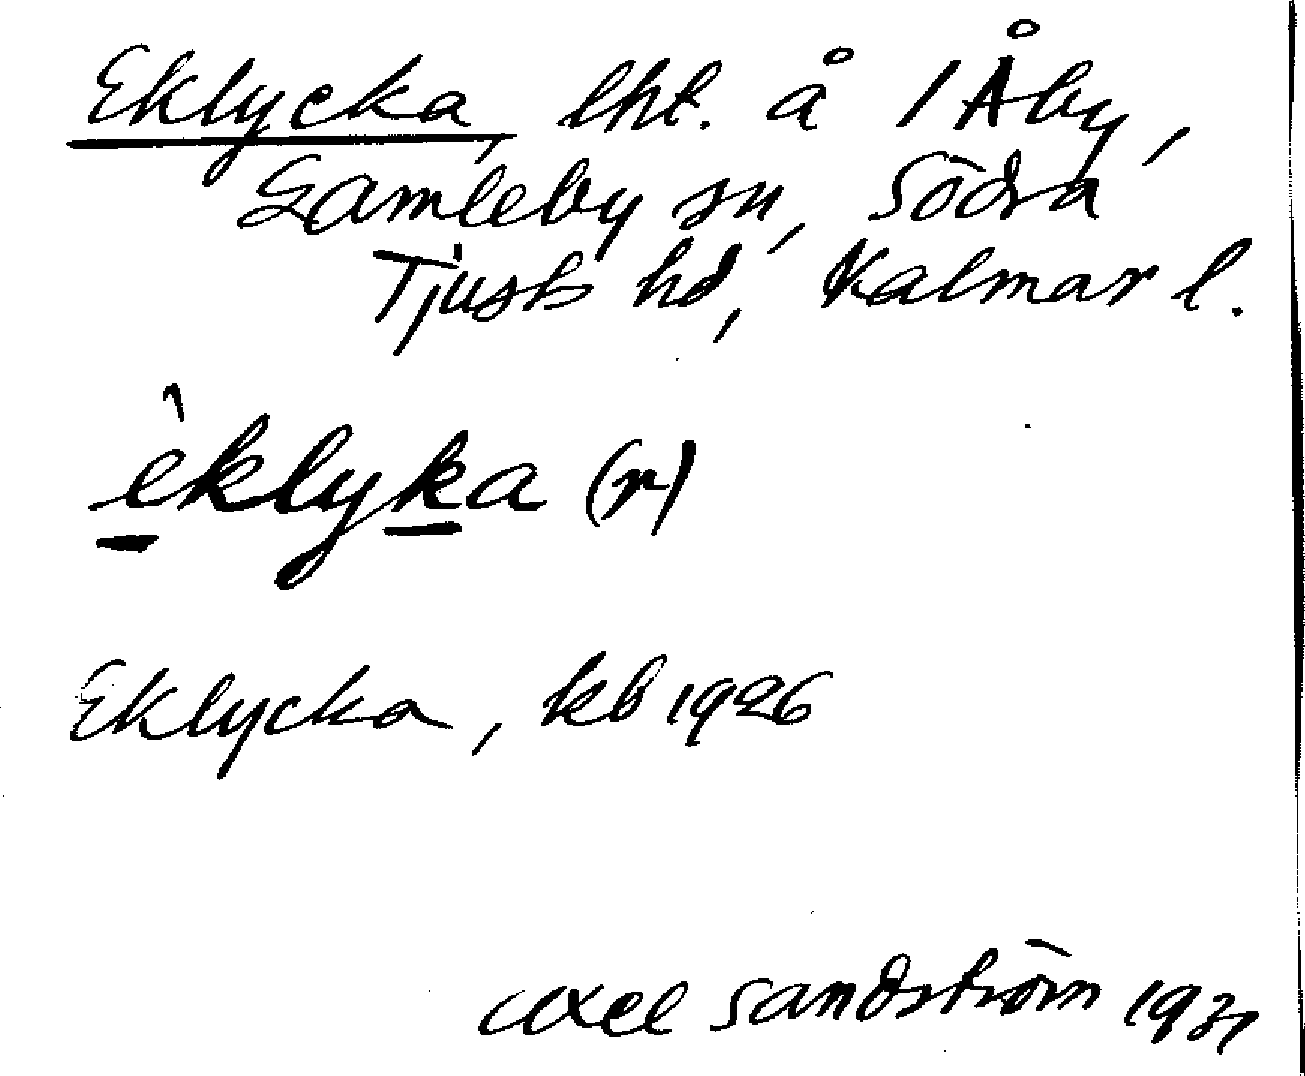 Eklycka, lht. å 1 Åby,
Gamleby sn, Södra
Tjusts hd, Kalmar l.
èklyka (r)
Eklycka, kb 1926
Axel Sandström 1931